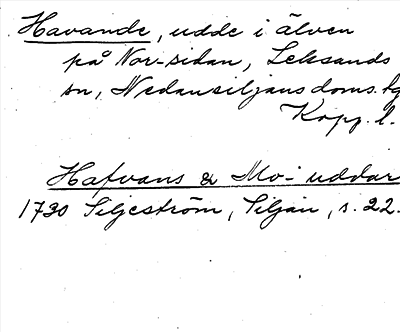 Havande, udde i älven
på Nor-sidan, Leksands
sn, Nedansiljans doms.hg
Kopp. l.
Hafvans & Mo- uddar
1730 Siljeström, Siljan, s. 22.